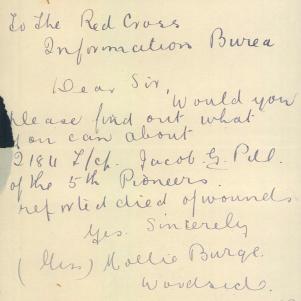 To The Red Cross
Information Burea
Dear Sir,
Would you
please find out what
you can about
2184 L/cp. Jacob G. Pell
of the 5th Pioneers.
reported died of wounds
Yrs. Sincerely
(Miss) Mollie Burge.
Woodside.